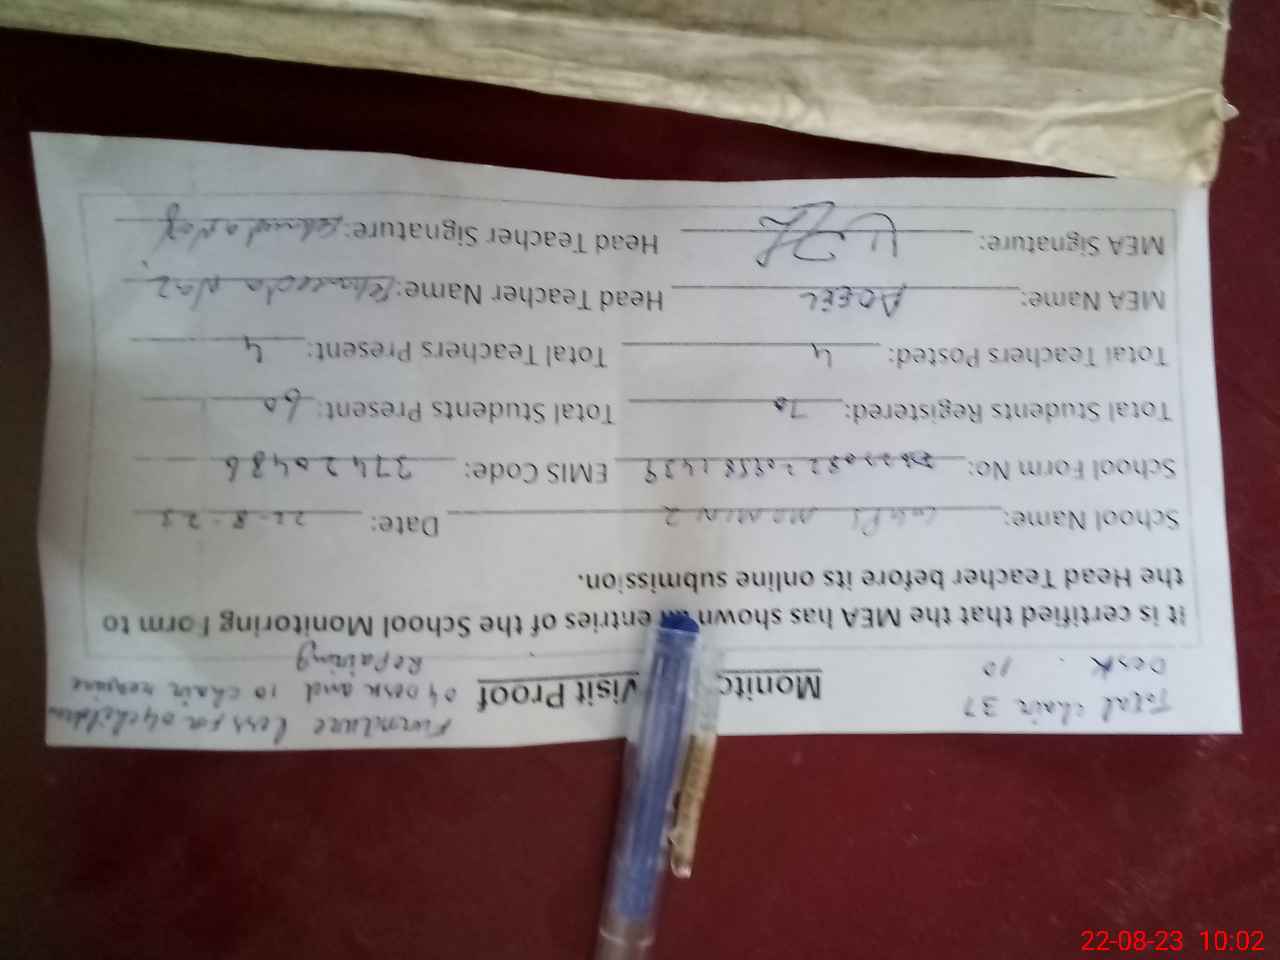 Total chair 37
Furniture less for 04 children
Desk . 10
04 Desk and 10 chair require
Repairing
Monito Visit Proof
It is certified that the MEA has shown all entries of the School Monitoring Form to
the Head Teacher before its online submission.
School Name: GGPS MOMIN 2 Date: 22-8-23
School Form No: EMIS Code: 37420486
Total Students Registered: 70 Total Students Present: 60
Total Teachers Posted: 4 Total Teachers Present: 4
MEA Name: ADEEL Head Teacher Name: Naz
MEA Signature: Head Teacher Signature:
22-08-23 10:02